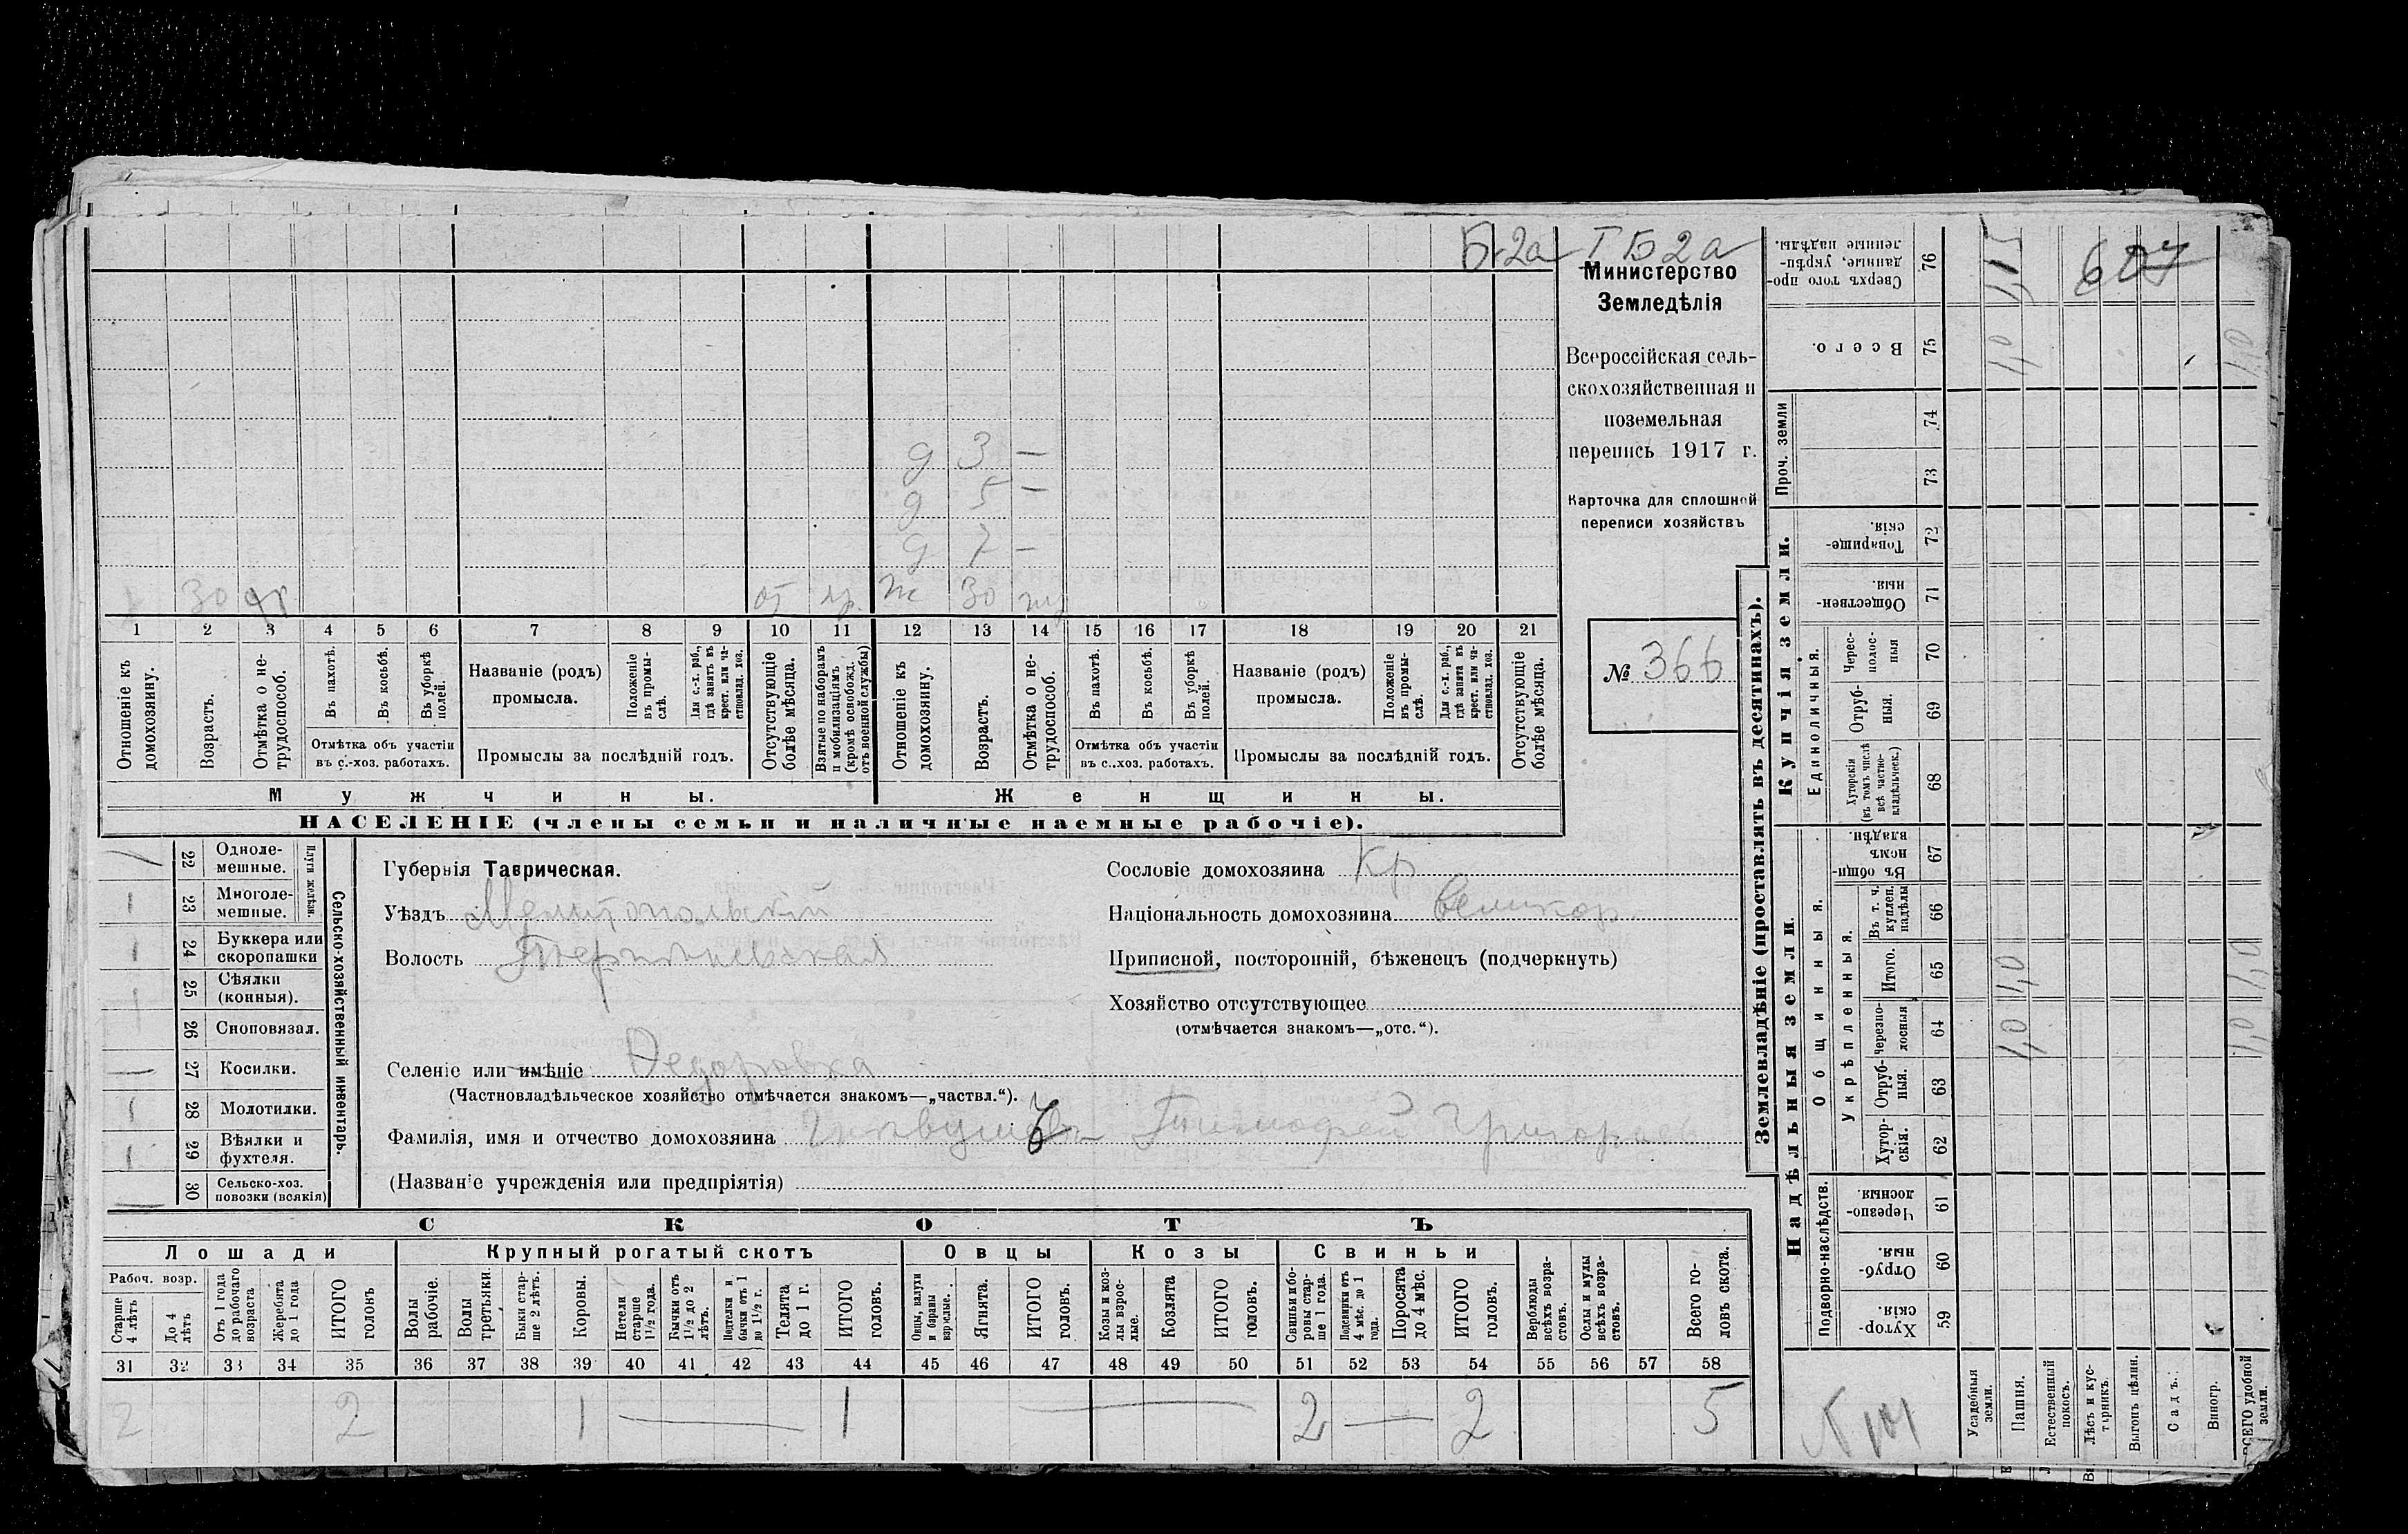 Б2а ГБ2а
Министерство
Земледѣлія
Всероссійская сель-
скохозяйственная и
поземельная
перепись 1917 г.
Карточка для сплошной
переписи хозяйствъ
№ 366
д 3 —
д 5 —
д 7 —
30 от ж 30
1 2 3 4 5 6 7 8 9 10 11 12 13 14 15 16 17 18 19 20 21
Отношеніе къ домохозяину.
Возрастъ.
Отмѣтка о не-трудоспособ.
Въ пахотѣ.
Въ косьбѣ.
Въ уборкѣ полей.
Отмѣтка объ участіи
въ с.-хоз. работахъ.
Названіе (родъ)
промысла.
Положеніе въ промы-слѣ.
Для с.-х. раб., гдѣ занятъ въ крест. или ча-стновлад. хоз.
Промыслы за послѣдній годъ.
Отсутствующіе болѣе мѣсяца.
Взятые по наборамъ и мобилизаціямъ (кромѣ освобожд. отъ военной службы)
Отношеніе къ домохозяину.
Возрастъ.
Отмѣтка о не-трудоспособ.
Въ пахотѣ.
Въ косьбѣ.
Въ уборкѣ полей.
Отмѣтка объ участіи
въ с..хоз. работахъ.
Названіе (родъ)
промысла.
Положеніе въ промы-слѣ.
Для с.-х. раб., гдѣ занята въ крест. или ча-стновлад. хоз.
Промыслы за послѣдній годъ.
Отсутствующіе болѣе мѣсяца.
Мужчины. Женщины.
НАСЕЛЕНІЕ (члены семьи и наличные наемные рабочіе).
Сельско-хозяйственный инвентарь.
Плуги желѣзн.
22 Одноле-мешные.
23 Многоле-мешные.
24 Буккера или скоропашки
25 Сѣялки (конныя).
26 Сноповязал.
27 Косилки.
28 Молотилки.
29 Вѣялки и фухтеля.
30 Сельско-хоз. повозки (всякія)
Губернія Таврическая.
Уѣздъ Мелитопольскій
Волость
Селеніе или имѣніе Федоровка
(Частновладѣльческое хозяйство отмѣчается знакомъ—„частвл.“).
Фамилія, имя и отчество домохозяина Тимофей Григорьев
(Названіе учрежденія или предпріятія)
Сословіе домохозяина Кр
Національность домохозяина великор.
Приписной, посторонній, бѣженецъ (подчеркнуть)
Хозяйство отсутствующее
(отмѣчается знакомъ—„отс.“).
СКОТЪ
Лошади Крупный рогатый скотъ Овцы Козы Свиньи
Рабоч. возр.
Старше 4 лѣтъ
До 4 лѣтъ
Отъ 1 года до рабочаго возраста
Жеребята до 1 года
ИТОГО головъ
Волы рабочіе.
Волы третьяки.
Быки стар-ше 2 лѣтъ.
Коровы.
Нетели старше 1½ года.
Бычки отъ 1½ до 2 лѣтъ.
Подтелки и бычки отъ 1 до 1½ г.
Телята до 1 г.
ИТОГО головъ.
Овцы, валухи и бараны взрослые.
Ягнята.
ИТОГО головъ.
Козы и коз-лы взрос-лые.
Козлята
ИТОГО головъ.
Свиньи и бо-ровы стар-ше 1 года.
Подсвинки отъ 4 мѣс. до 1 года.
Поросята до 4 мѣс.
ИТОГО головъ.
Верблюды всѣхъ возра-стовъ.
Ослы и мулы всѣхъ возра-стовъ.
Всего го-ловъ скота.
31 32 33 34 35 36 37 38 39 40 41 42 43 44 45 46 47 48 49 50 51 52 53 54 55 56 57 58
2 2 1 — 1 — 2 — 2 5
Землевладѣніе (проставлять въ десятинахъ).
Надѣльныя земли. Купчія земли.
Подворно-наслѣдств.
Общинныя.
Укрѣпленныя.
Единоличныя.
Проч. земли
Хутор-скія. 59
Отруб-ныя. 60
Черезпо-лосныя. 61
Хутор-скія. 62
Отруб-ныя. 63
Черезпо-лосныя 64
Итого. 65
Въ т. ч. куплен. надѣлы 66
Въ общин-номъ владѣн. 67
Хуторскія (въ томъ числѣ всѣ частно-владѣльческ.) 68
Отруб-ныя. 69
Черес-полос-ныя 70
Обществен-ныя. 71
Товарище-скія. 72
73
74
Всего. 75
Сверхъ того про-данные, укрѣп-ленные надѣлы. 76
Усадебныя земли.
Пашня.
Естественный покосъ.
Лѣсъ и кус-тарникъ.
Выгонъ цѣлин.
Садъ.
Виногр.
ВСЕГО удобной земли.
1,0 1,0 1,0
1,0 1,0 1,0